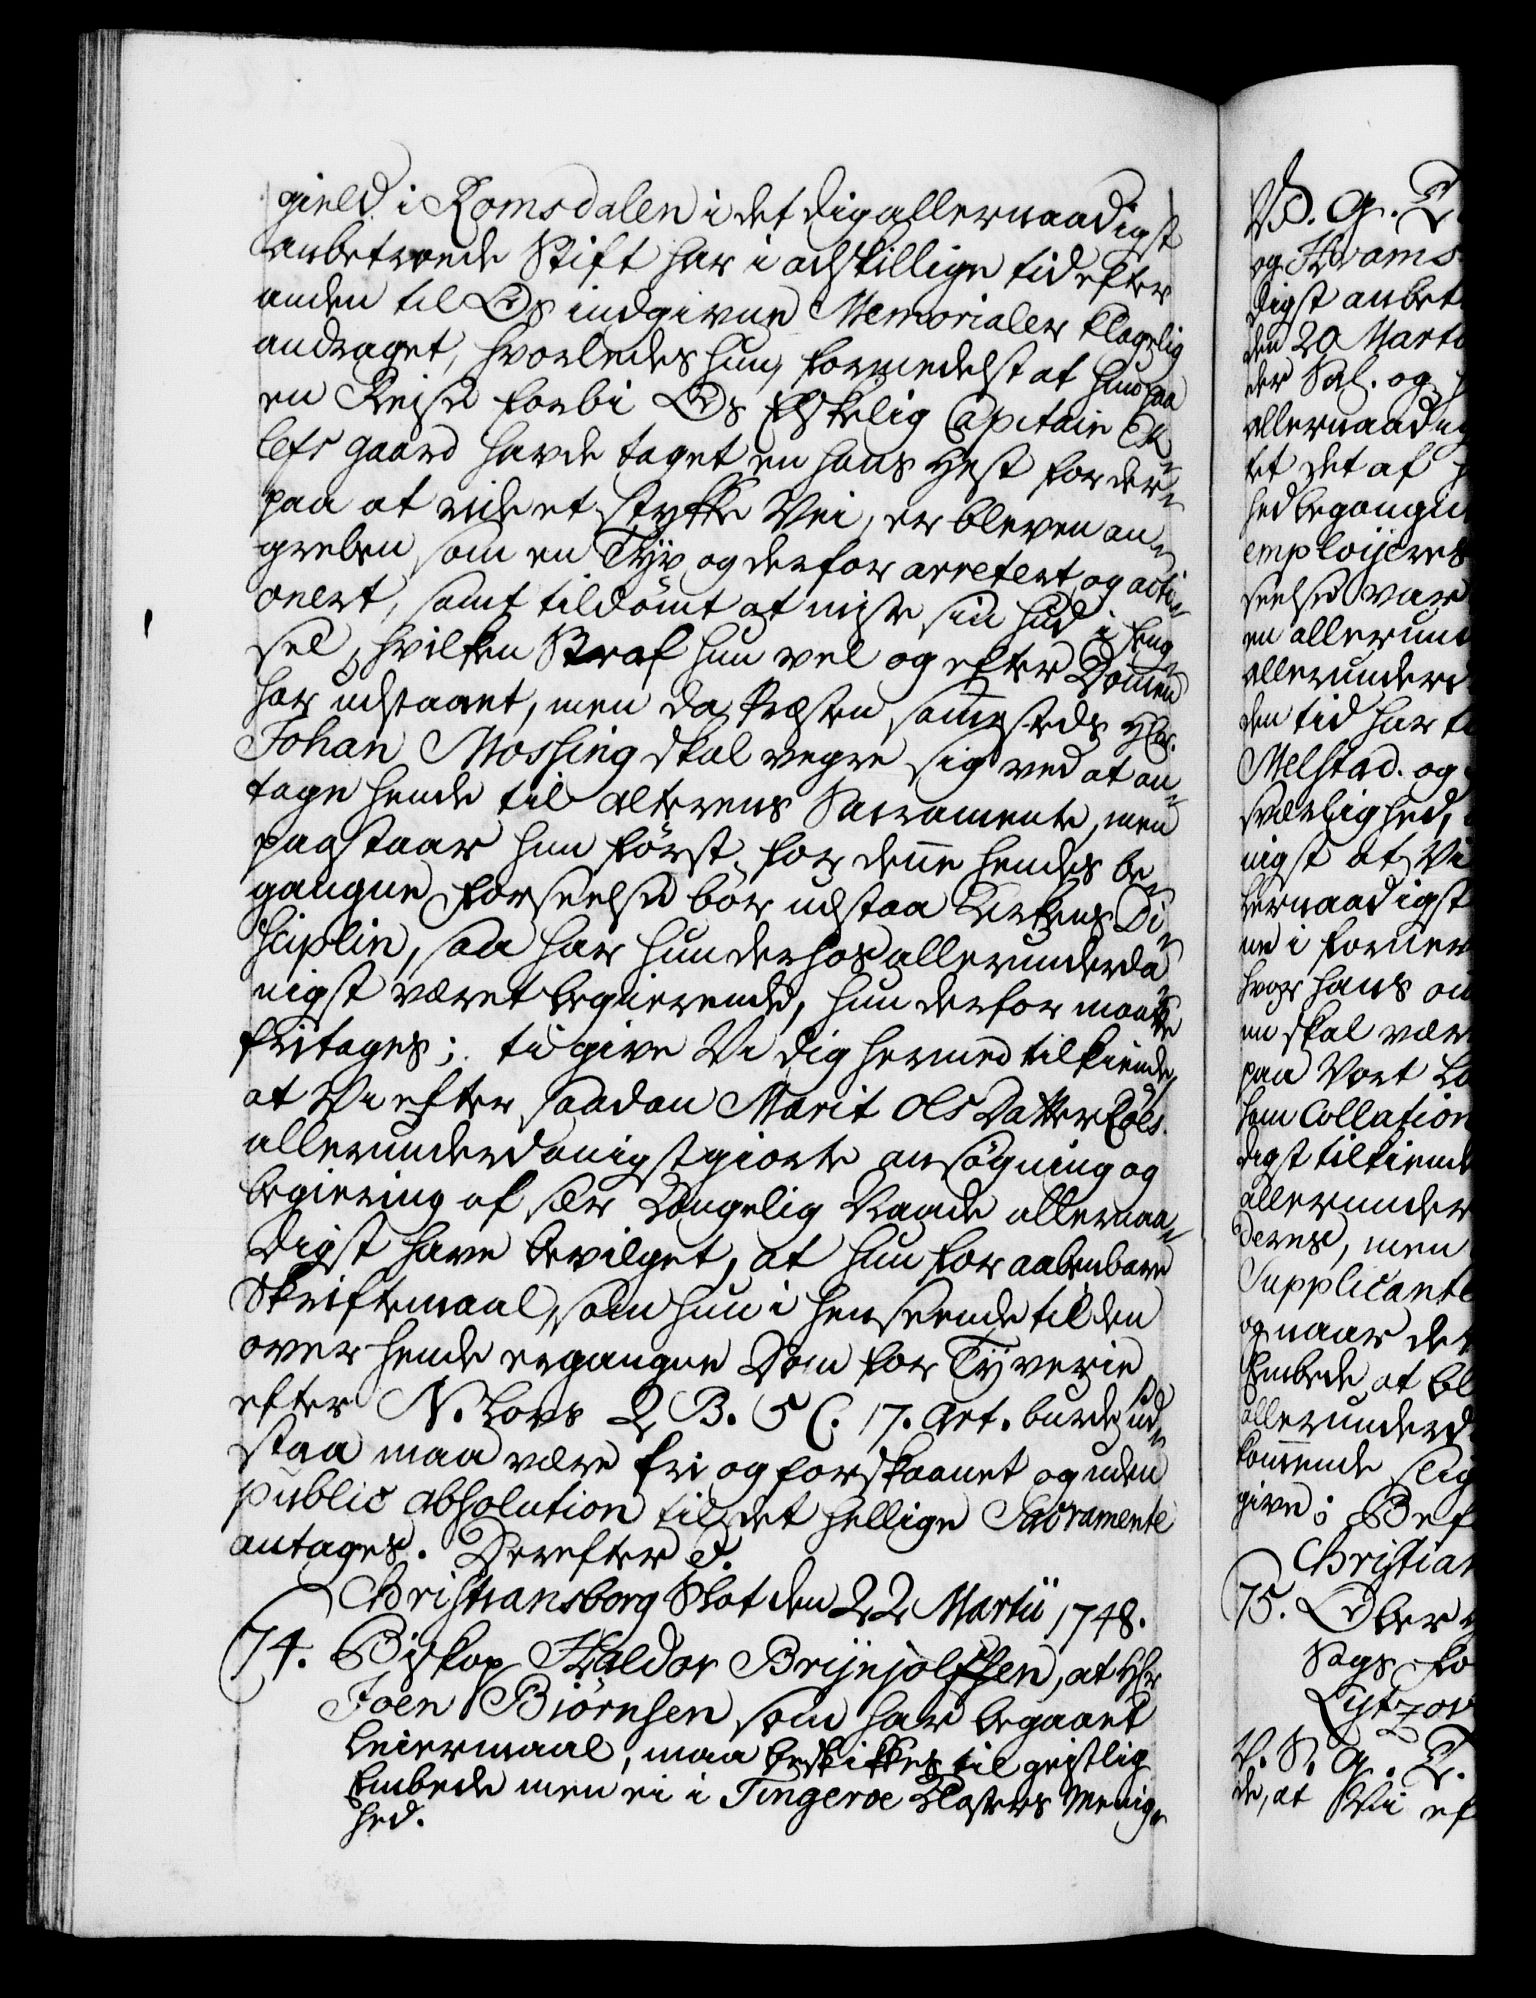 gield i Romsdalen i det dig allernaadigst
anbetroede Stift har i adskillige tid efter
anden til Os indgivne Memorialer klagelig
andraget, hvorledes hun, formedelst at hun paa
en Reise forbi Os Elskelig Capitain Ek-
lefs gaard havde taget en hans Hest for der-
paa at ride et stykke Vei, er bleven an-
greben som en Tyv og derfor arretert og acti-
onert, samt tildømt at miste sin hud i feng-
sel, hvilken Straf hun vel og efter Dommen
har udstaaet, men da Præsten sammesteds Hr.
Johan Mossing skal vegre sig ved at an-
tage hende til alterens Sacramente, men
paastaar hun først for denne hendes be-
gangne Forseelse bør udstaa Kirkens Di-
sciplin, saa har hun derhos allerunderda-
nigst været begierende, hun derfor maatte
fritages; ti give Vi dig hermed tilkiende,
at Vi efter saadan Marit Ols Datter Føls.
allerunderdanigst giorte ansøgning og
begiering af sær Kongelig Naade allernaa-
digst have bevilget, at hun for aabenbare
Skriftemaal, som hun i henseende til den
over hende ergangne Dom for Tyverie
efter N. Lovs 2 B. 5 C. 17. Art. burde ud-
staa maa være fri og forskaanet og uden
public absolution til det hellige Sacramente
antages. Derefter d.
Christiansborg Slot den 22 Martii 1748.
74. Biskop Haldor Brijnjolfsen, at Hr
Joen Biørnsen som har begaaet
Leiermaal, maa beskikkes til geistlig
Embede men ei i Tingeroe Klosters Menig-
hed.
V. G. T
og Thrams
digst anbet
den 20 Marti
der Sal. og
allernaadig
tet det af
hed begangn
emploijeres
seelse var
en allerund
allerunderd
den tid har
Melstad. og
sværlighed,
nigst at Vi
lernaadigst
ne i former
hvor hans
en skal vær
paa Vort
ham Collation
digst tilkiend
allerunder
deres, men
Supplicante
og naar det
Embede at bl
allerunderd
kommende slig
give; Bef
Christian
75. Ober
Sogs fo
Lytzow
V. S. G. T.
de, at Vii ef